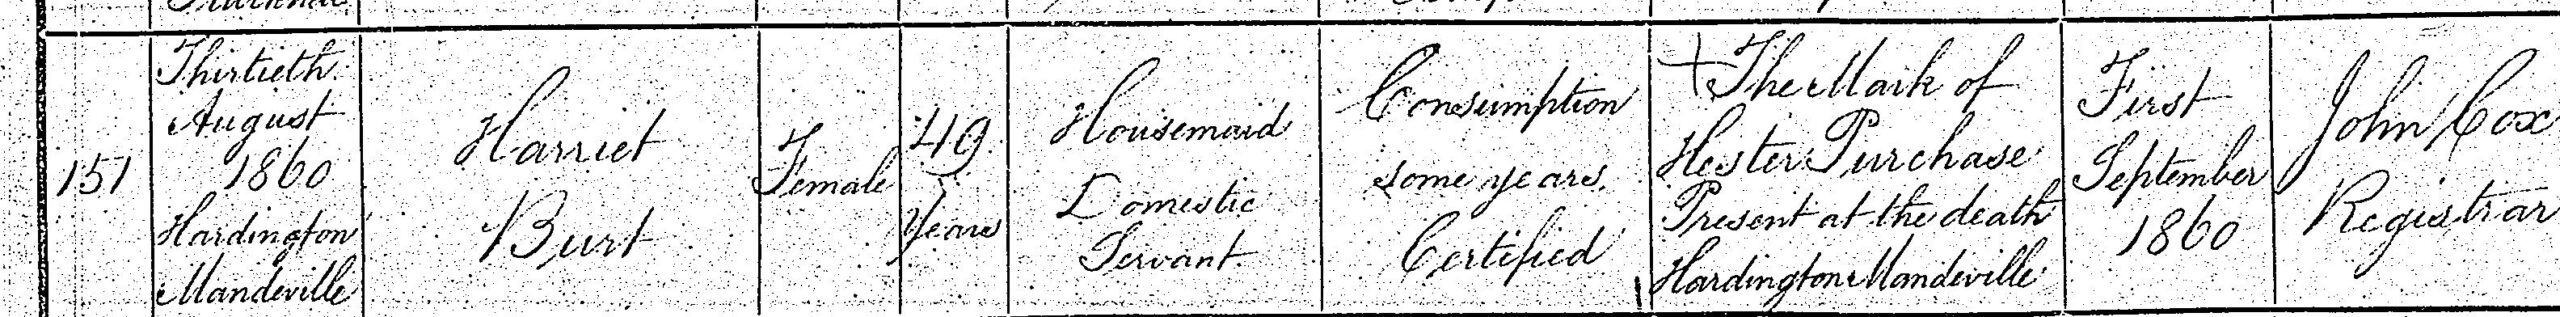 151
Thirtieth
August
1860
Hardington
Mandeville
Harriet
Burt
Female
49
Years
Housemaid
Domestic
Servant
Consumption
some years.
Certified
X The Mark of
Hester Purchase
Present at the death
Hardington Mandeville
First
September
1860
John Cox
Registrar